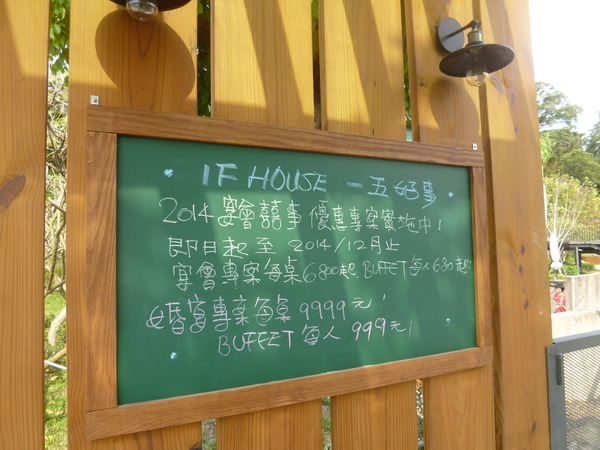 IF HOUSE 一五好事
2014宴會囍事優惠專案實施中!
即日起至 2014/12月止
宴會專案每桌6800起 BUFFET每人680起!
婚宴專案每桌 9999元!
BUFFET 每人 999元!